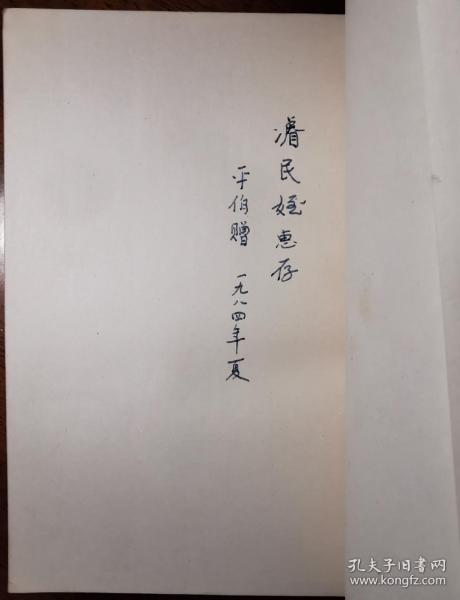 濬民姪惠存
平伯赠 一九八四年夏
孔夫子旧书网
www.kongfz.com